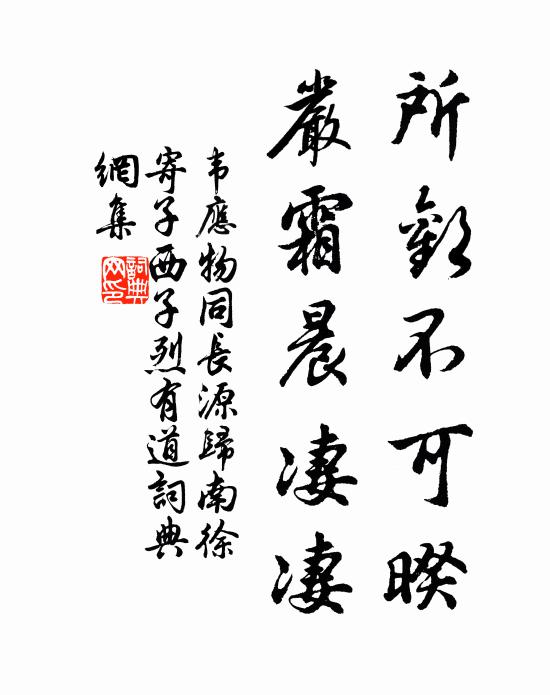 所歡不可暌
嚴霜晨凄凄
韦應物同長源歸南徐
寄子西子烈有道詞典
網集
詞典
网印